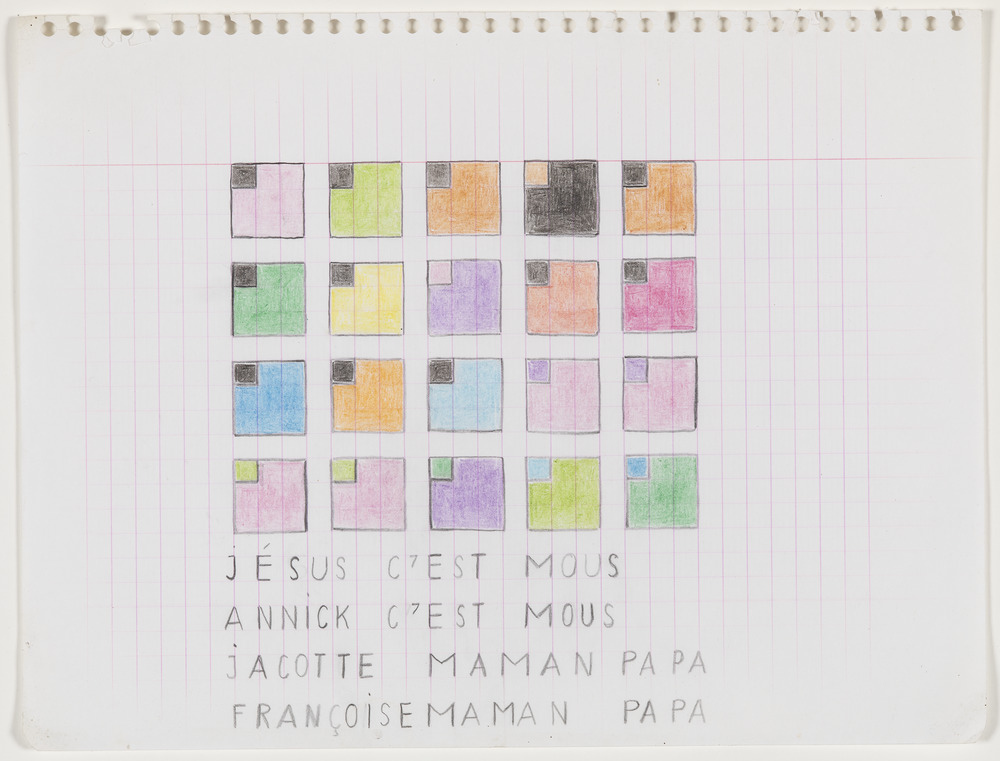 jÉSUS C'EST MOUS
ANNiCK C'EST MOUS
jACOTTE MAMAN PAPA
FRANÇOiSE MAMAN PAPA